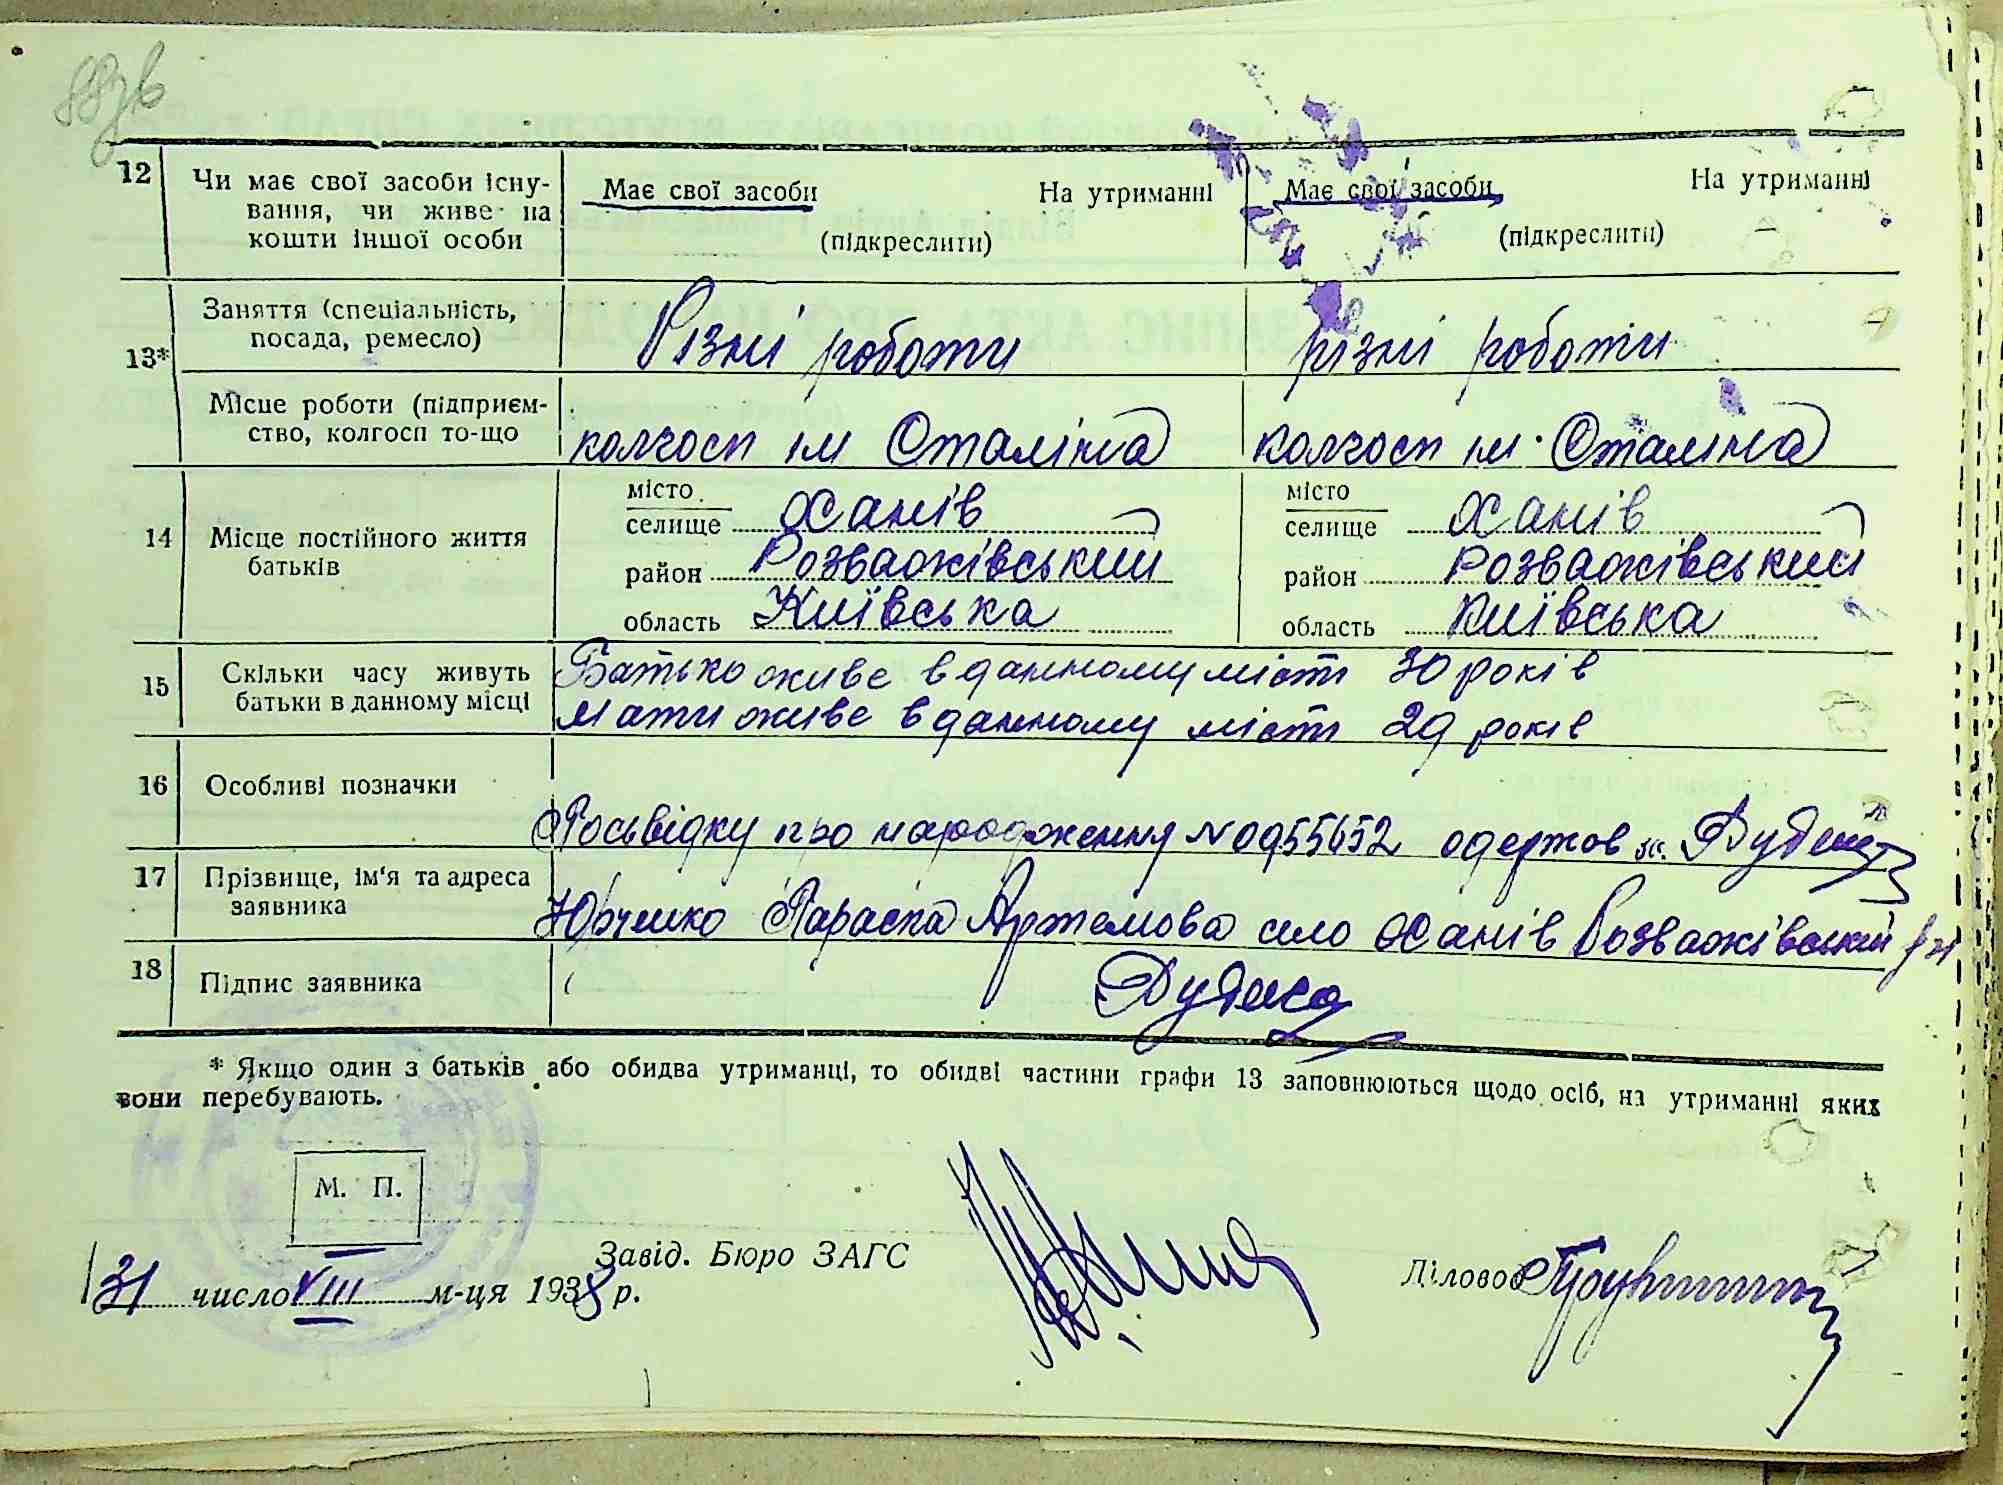 12 Чи має свої засоби існу-
вання, чи живе на
кошти іншої особи
Має свої засоби На утриманні
(підкреслити)
Має свої засоби На утриманні
(підкреслити)
13*
Заняття (спеціальність,
посада, ремесло)
Різні роботи різні роботи
Місце роботи (підприєм-
ство, колгосп то-що
колгосп ім Сталіна колгосп ім. Сталіна
14 Місце постійного життя
батьків
місто
селище Ханів
район Розважівський
область Київська
місто
селище Ханів
район Розважівський
область Київська
15 Скільки часу живуть
батьки в данному місці
Батько живе в данному місті 30 років
Мати живе в данному місті 29 років
16 Особливі позначки
Посьвідку про народження N 0955652 одержов
17 Прізвище, ім'я та адреса
заявника
Юрченко Параска Артемова село Ханів Розважівський р н
18 Підпис заявника
* Якщо один з батьків або обидва утриманці, то обидві частини графи 13 заповнюються щодо осіб, на утриманні яких
вони перебувають.
М. П.
Завід. Бюро ЗАГС
Діловод
31 число VIII м-ця 1938 р.